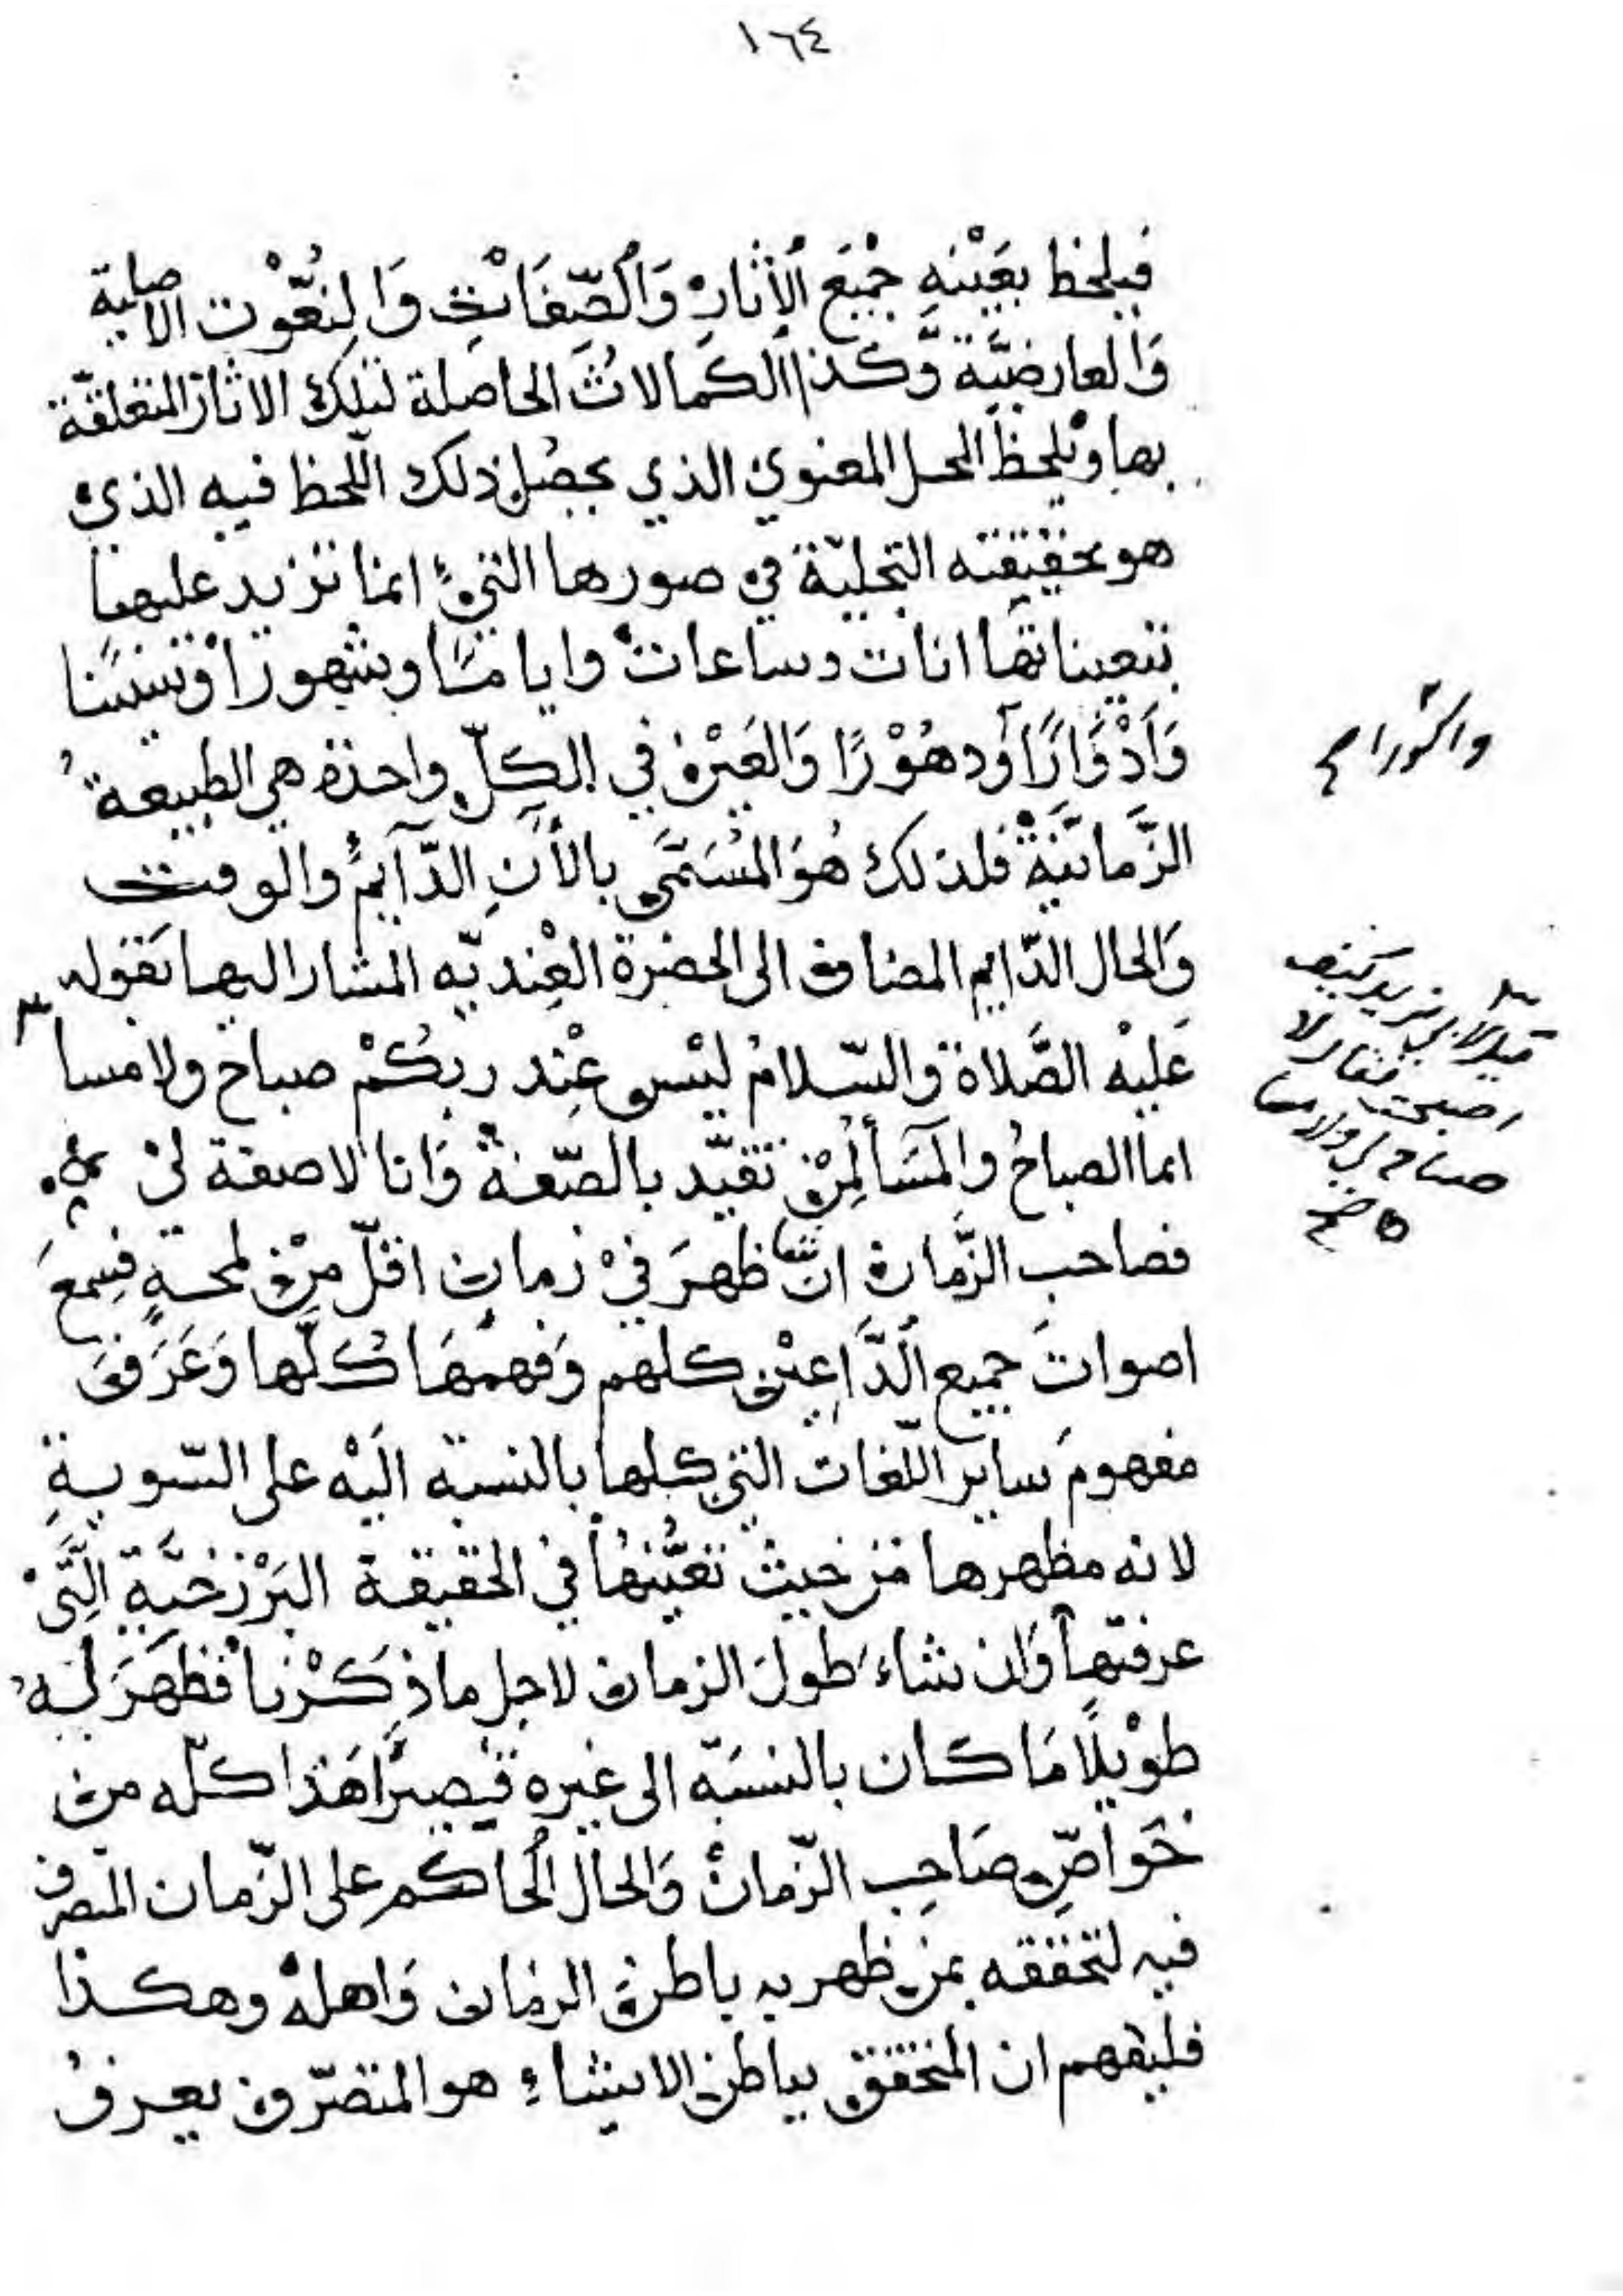 ١٦٤
فيلحظ بعَيْنه جْميَع الأثارْ وَالصِّفَات وَالنُعُّوْت الاصلية
وَالعارضيَّة وَّكذا الكمالاتُ الحاصلة لتلك الاثار المتعلقّة
بها ويْلحظ المحل المعنوي الذي يحصل ذلك اللّحظ فيه الذي
هو حقيقته التجليّة في صورها التي انما تزيد عليها
بتعيناتها انات وساعات واياما وشهورا وسنينا
وَأدْوَارًا وَدهُوْرًا وَالعَيْن في الكلّ واحدة هي الطبيعةُ
الزَّمانيَّةْ فلذلك هُوَ المُسَمَّي بالأَنِ الدَّآيمُ والوقت
وَالحال الدّايم المضاف الى الحضرة العِنْديّه المشار اليها بَقوله
عَليْه الصَّلاة وَالسّلامُ ليْس عِنْد ربكُمْ صباح ولا مسا ٣
انما الصباحُ والمَسَا لمِنْ تقيّد بالصّفةْ وَانا لا صفة ليْ
فصاحب الزَّمان ان شا ظهرَ فيْ زمان اقلّ مِنْ لمحةٍ فسِمعَ
اصواتَ جميع الدَّاعِيْن كلهم وَفهمهَا كُلّها وَعَرَفَ
مفهومَ ساير اللّغات التي كلها بالنسبة اليْه على السّويةِ
لانه مظهرها من حيث تعيُّنهُا في الحقيقة البَرْزخيَّةِ الَّتيْ
عرفتها وَان شاءَ طولَ الزمان لاجل ما ذكَرْنا فظهَرَ لهُ
طوْيلًا مَا كان بالنسبَة الى غيره قصيرًا هَذا كلّه من
خَوَاصِّ صَاحِب الزّمانْ وَالحال الُحاكم على الزّمان المتصرف
فيه لتحققه بمن ظهر به باطن الزمان وَاهلهُ وهكذا
فليفهم ان المتحقق بباطن الاشياءِ هو المتصرّف يعرفُ
قيل لابي يزيد كيف
اصبحت فقال لا
صباح لي ولا مسا